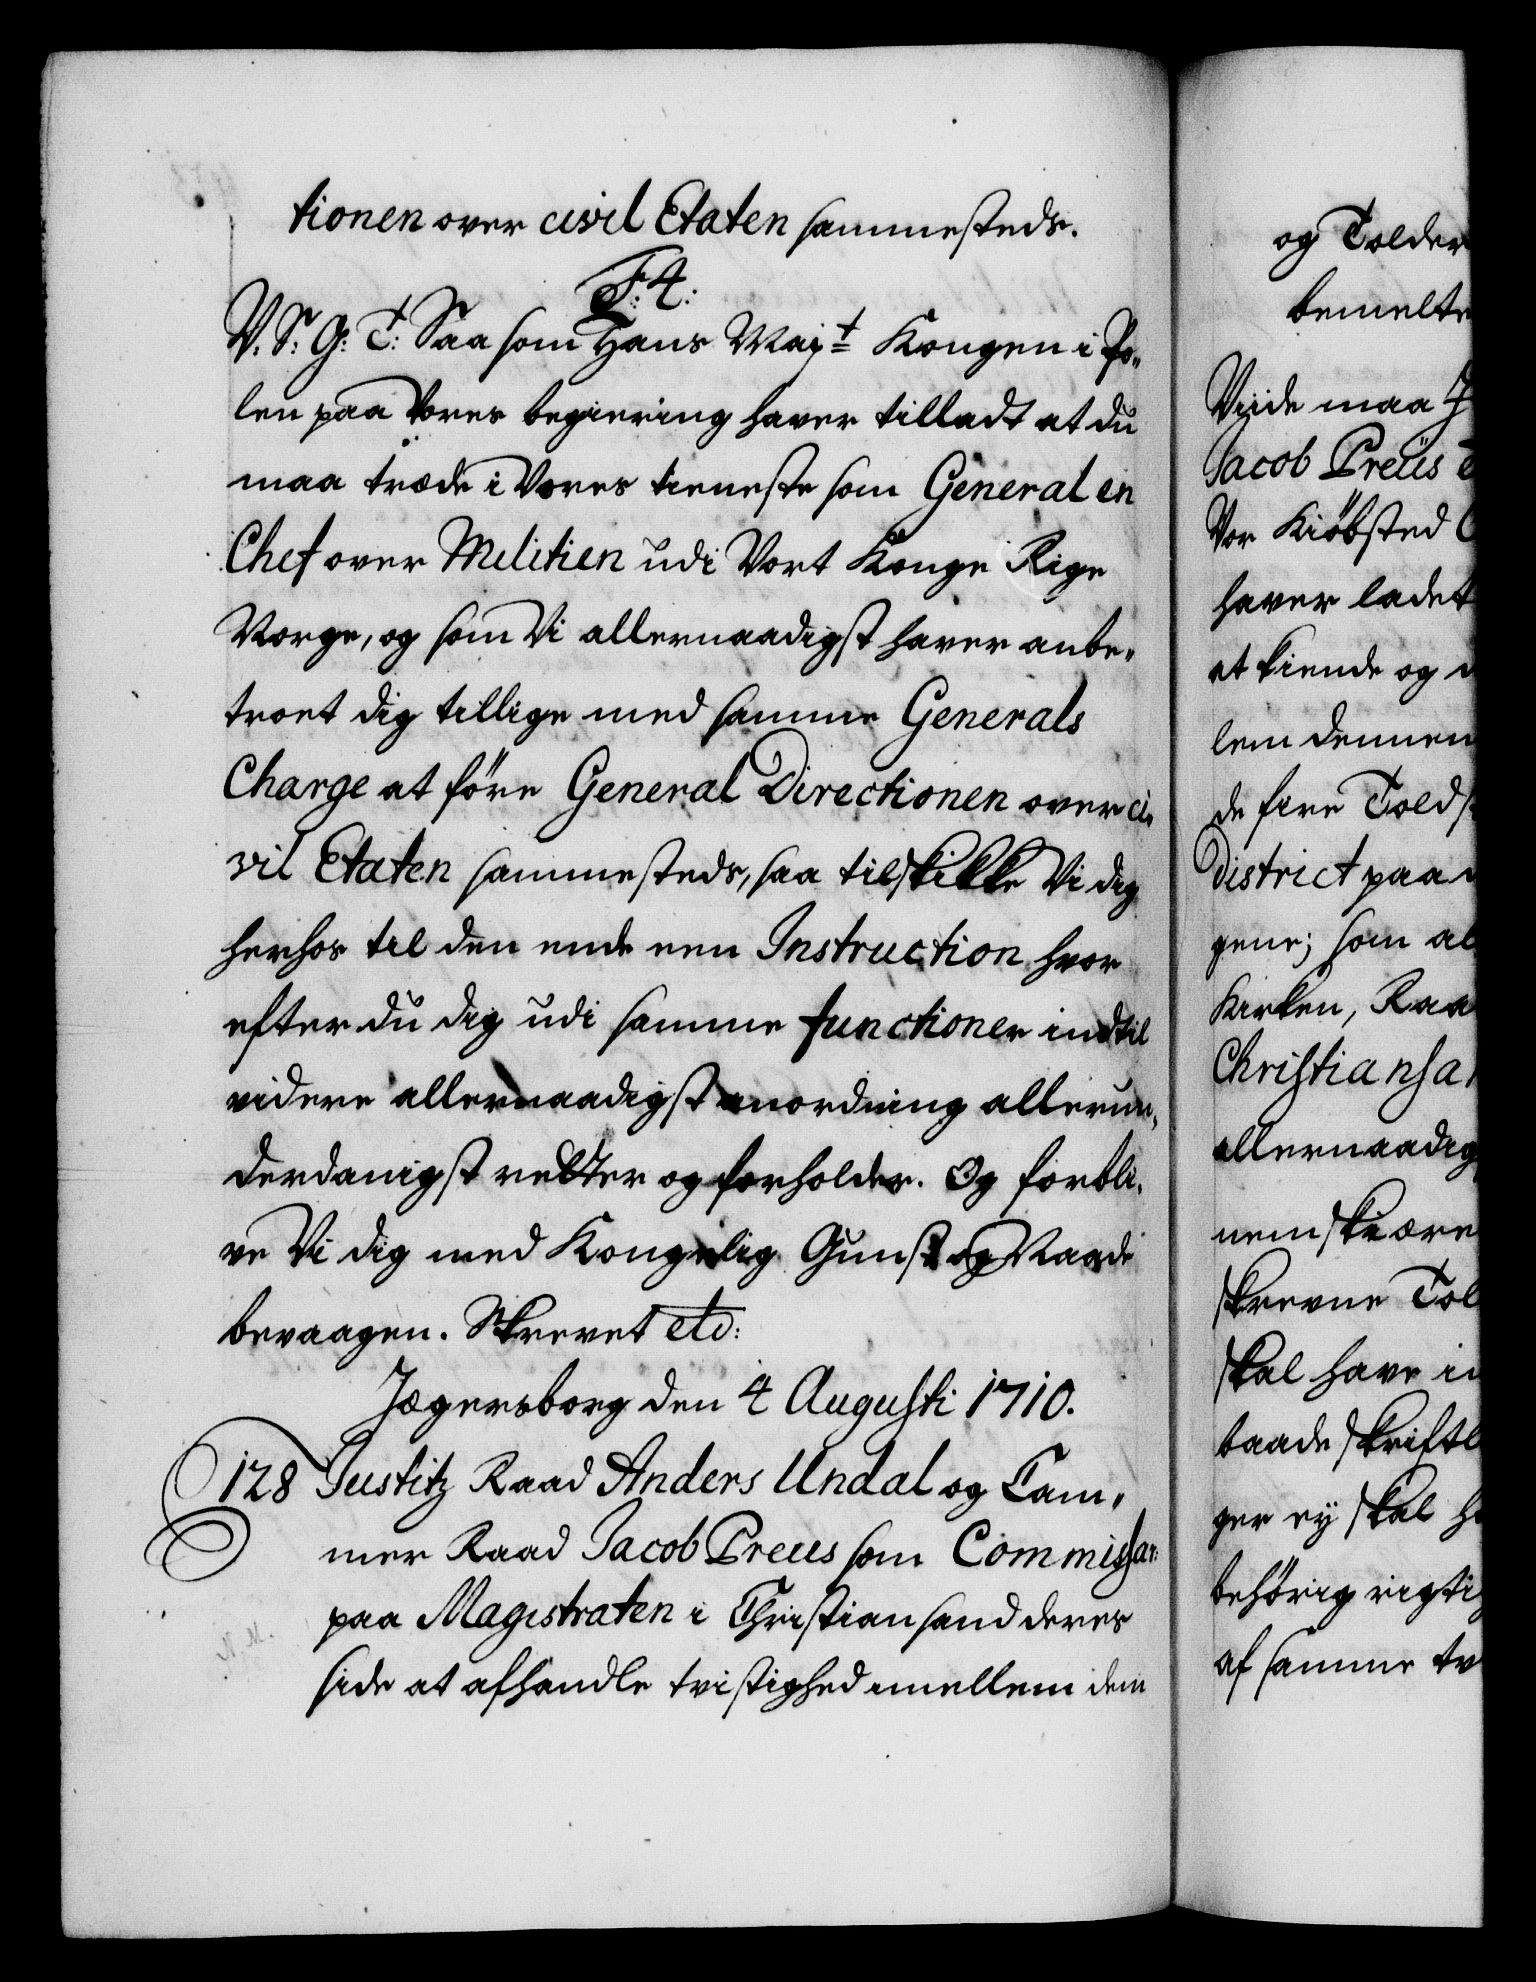 tionen over civil Etaten sammesteds.
F: 4:
V. S: G: T: Saasom Hans Maj:t Kongen i Po„
len paa Vores begiering haver tilladt at du
maa træde i Vores tieneste som General en
Chef over Militien udi Vort Konge Rige
Norge, og som Vi allernaadigst haver anbe„
troet dig tillige med samme Generals
Charge at føre General Directionen over ci„
vil Etaten sammesteds, saa tilskikke Vi dig
herhos til den ende een Instruction hvor
efter du dig udi samme functioner indtil
videre allernaadigst anordning allerun„
derdanigst retter og forholder. Og forbli„
ve Vi dig med Kongelig Gunst og Naade
bevaagen. Skrevet etc:
Jægersborg den 4 Augusti 1710.
128 Justitz Raad Anders Undal og Cam„
mer Raad Jacob Preus som Commissar:
paa Magistraten i Christiansand deres
side at afhandle tvistighed imellem dem
og Tolder
bemelte
Viide maa
Jacob Preüs
Vor Kiøbsted
haver ladet
at kiende og
lem dennem
de fire Tolds
District paa
gene; som al
Kirken, Raa
Christiansa
allernaadig
nemskiære
skrevne Tol
skal have in
baade skriftl
ger ey skal h
behørig rigti
af samme tv